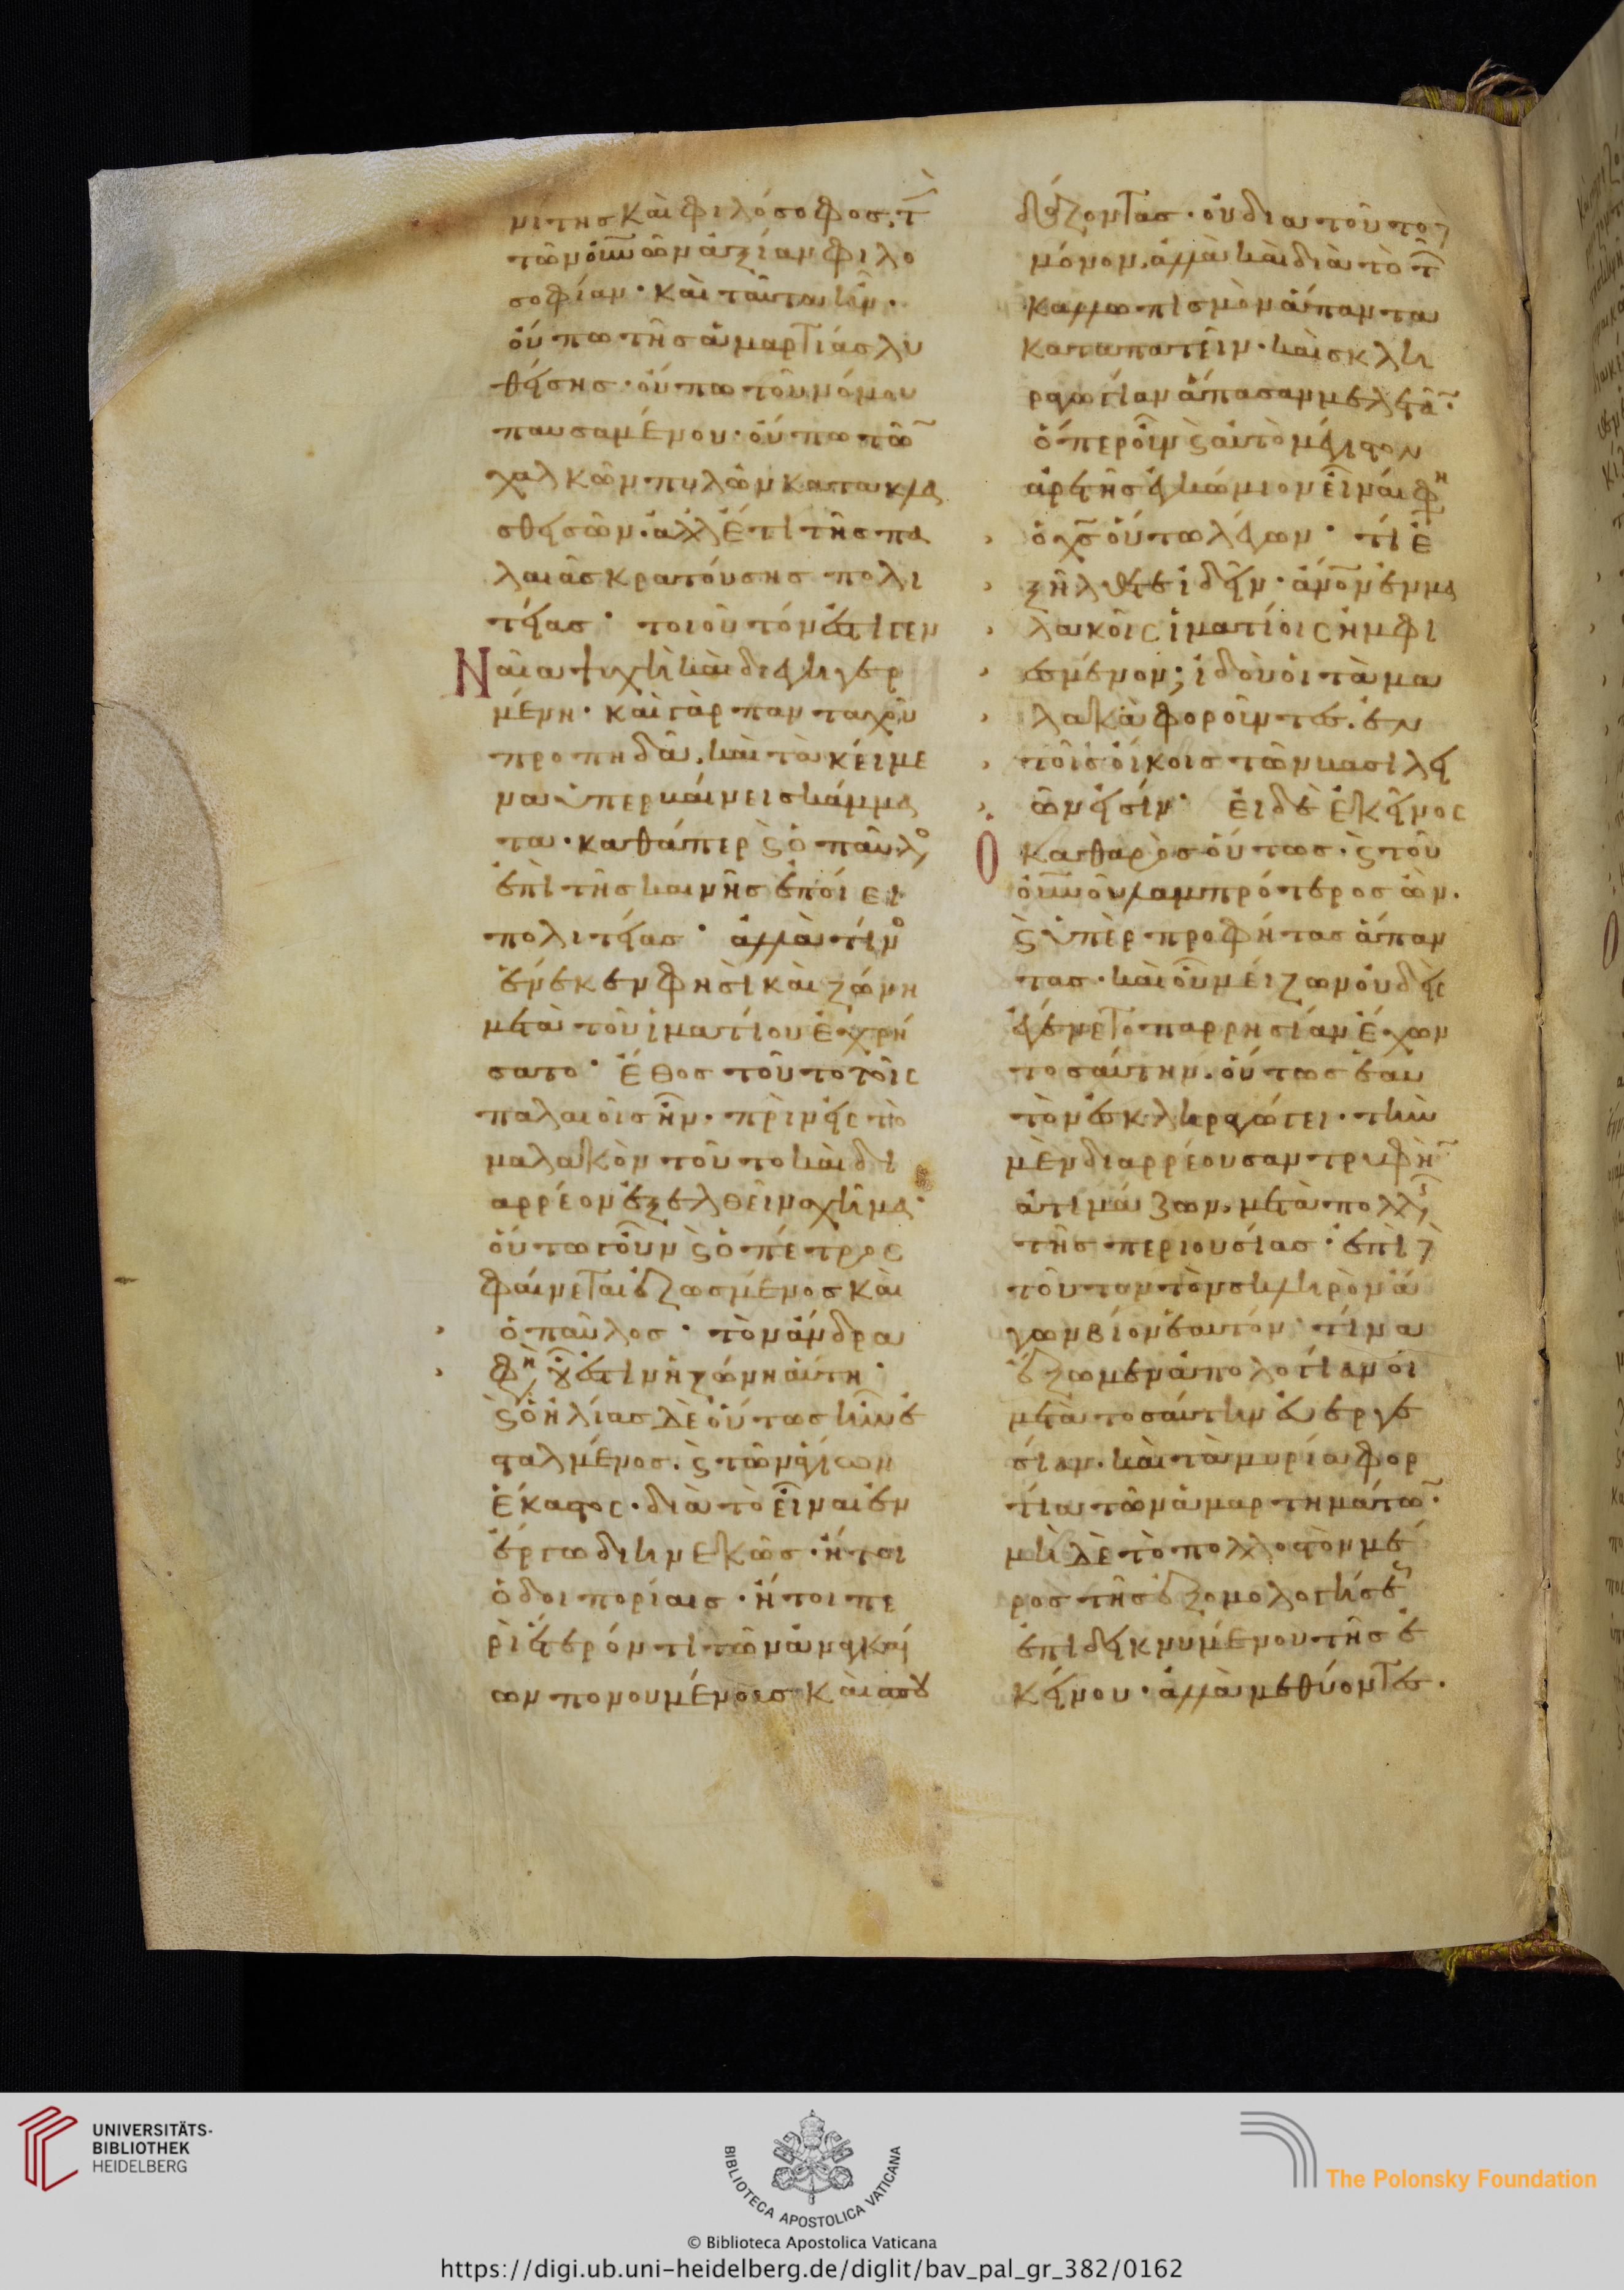 μίτης καὶ φιλόσοφος. τ̀
τῶν οὐν̅ῶν ἀξίαν φιλο
σοφίαν· καὶ ταῦτα ἦν·
οὔπω τῆς ἁμαρτίας λυ
θείσης· οὔπω τοῦ νόμου
παυσαμένου· οὔπω τῶ̅
χαλκῶν πυλῶν κατακλα
σθεισῶν· ἀλλ' ἔτι τῆς πα
λαιᾶς κρατούσης πολι
τείας· τοιοῦτόν ἐστι γεν
Ναία ψυχὴ καὶ διεγηγερ
μένη· καὶ γὰρ πανταχοῦ
προπηδᾶ, καὶ τὰ κείμε
να ὑπερβαίνει σκάμμα
τα· καθάπερ ϛ ὁ παῦλο
ἐπὶ τῆς καινῆς ἐποίει
πολιτείας· ἀλλὰ τίνο
ἕνεκεν φησὶ καὶ ζώνη
μετὰ τοῦ ἱματίου ἐχρή
σατο· ἔθος τοῦτο τοῖς
παλαιοῖς ἦν· πρὶν εἰς τὸ
μαλακὸν τοῦτο καὶ δι
αρρέον ἐξελθεῖν σχῆμα·
οὕτω γοῦν ϛ ὁ πέτρος
φαίνεται ἐζωσμένος καὶ
ὁ παῦλος· τὸν ἄνδρα
φη οὗ ἐστιν ἡ ζώνη αὕτη·
ϛ ὁ ἠλίας δὲ οὕτως ἦν ἐ
σταλμένος. ϛ τῶν ἁγίων
ἕκαστος· διὰ τὸ εἶναι ἐν
ἔργω διηνεκῶς· ἤτοι
ὁδοιπορίαις· ἤτοι πε
ρὶ ἕτερόν τι τῶν ἀναγκαί
ων πονουμένοις καὶ σπου
δάζοντας· οὐ δια τοῦτο δὲ
μόνον, ἀλλὰ καὶ διὰ τὸ τ̅
καλλωπισμὸν ἅπαντα
καταπατεῖν· καὶ σκλη
ραγωγίαν ἅπασαν μελετᾶ̅·
ὅπερ οὖν ϛ αὐτὸ μέγιστον
ἀρετῆς ἐγκώμιον εἶναί φη
ὁ χς̅ οὕτω λέγων· τί ἐ
ξήλθετε ἰδεῖν· ἄνον̅ ἐν μα
λακοῖς ἱματίοις ἠμφι
εσμένον; ἰδοὺ οἱ τὰ μα
λακὰ φοροῦντες. ἐν
τοῖς οἴκοις τῶν βασιλέ
ων εἰσίν· εἰ δὲ ἐκεῖνος
Ὁ καθαρὸς οὕτως. ϛ τοῦ
οὐν̅οῦ λαμπρότερος ὤν.
ϛ ὑπὲρ προφήτας ἅπαν
τας· καὶ οὗ μείζων οὐδεὶς
ἐγένετο παρρησίαν ἔχων
τοσαύτην. οὕτως ἑαυ
τὸν ἐσκληραγώγει· τὴν
μὲν διαρρέουσαν τρυφὴ̅
ἀτιμάζων. μετὰ πολλῆς
τῆς περιουσίας· ἐπὶ δὲ
τοῦτον τὸν σκληρὸν ἄ
γων βίον ἑαυτόν· τίνα
ἕξωμεν ἀπολογίαν οἱ
μετὰ τοσαύτην εὐεργε
σίαν. καὶ τὰ μυρία φορ
τία τῶν ἁμαρτημάτω̅·
μὴ δὲ τὸ πολλοστὸν μέ
ρος τῆς ἐξομολογήσεως
ἐπιδεικνύμενου τῆς ἐ
κείνου· ἀλλὰ μεθύοντες.
UNIVERSITÄTS-
BIBLIOTHEK
HEIDELBERG
BIBLIOTECA APOSTOLICA VATICANA
© Biblioteca Apostolica Vaticana
The Polonsky Foundation
https://digi.ub.uni-heidelberg.de/diglit/bav_pal_gr_382/0162